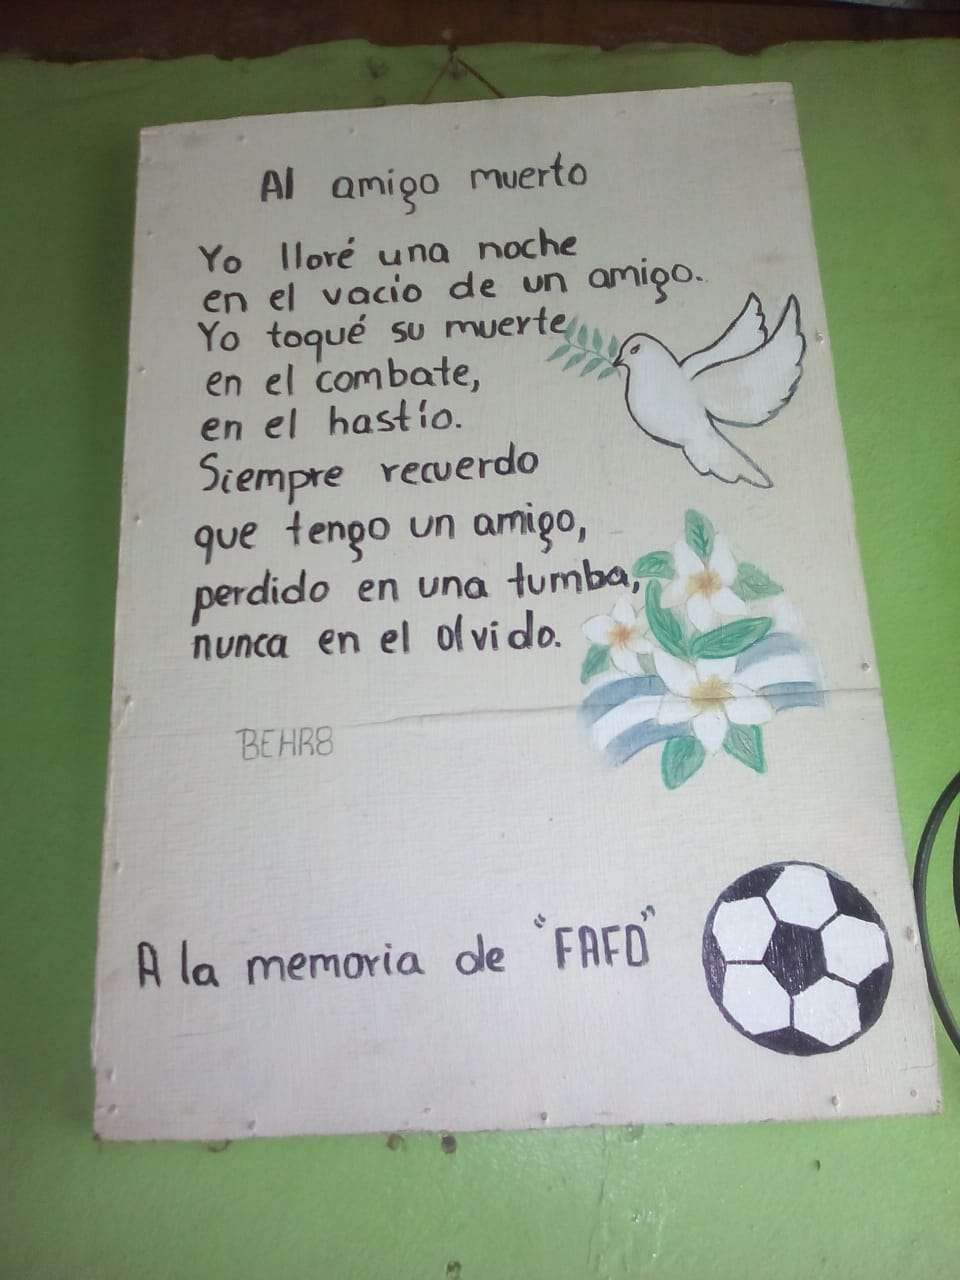 Al amigo muerto
Yo lloré una noche
en el vacio de un amigo.
Yo toqué su muerte
en el combate,
en el hastío.
Siempre recuerdo
que tengo un amigo,
perdido en una tumba,
nunca en el olvido.
BEHR8
A la memoria de "FAFO"